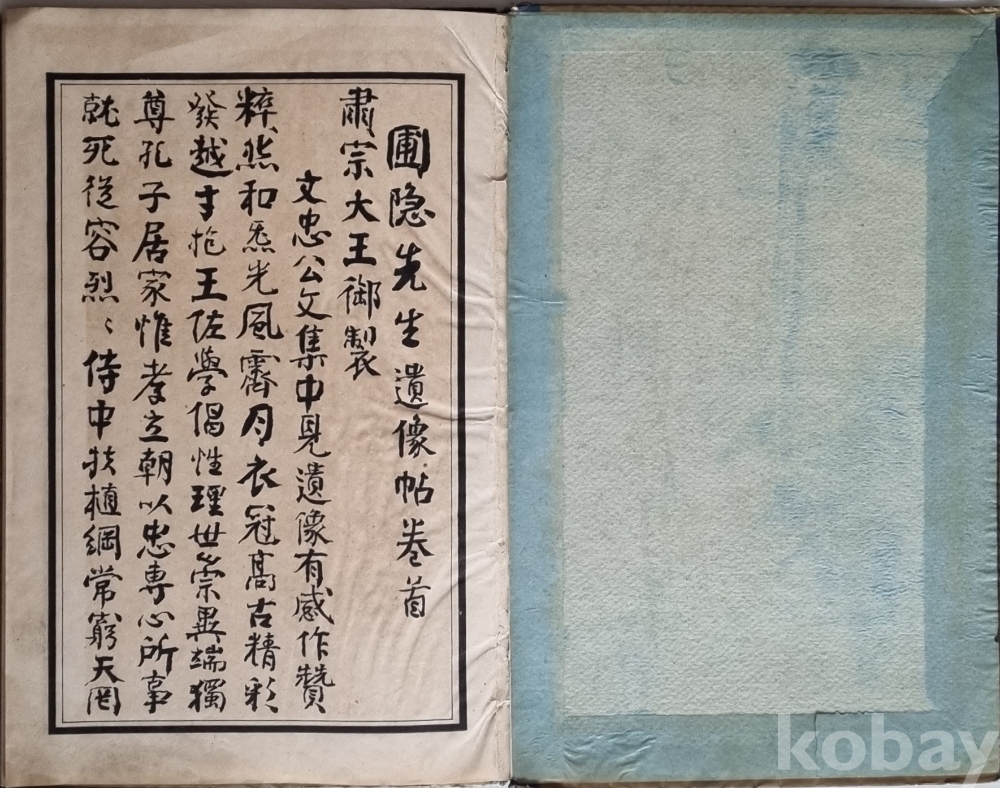 圃隐先生遺像帖卷首
肅宗大王御製
文忠公文集中見遺像有感作贊
粹然和炁光風霽月衣冠高古精彩
發越才抱王佐學倡性理世崇異端獨
尊孔子居家惟孝立朝以忠專心所事
就死從容烈〻侍中扶植綱常窮天罔
kobay